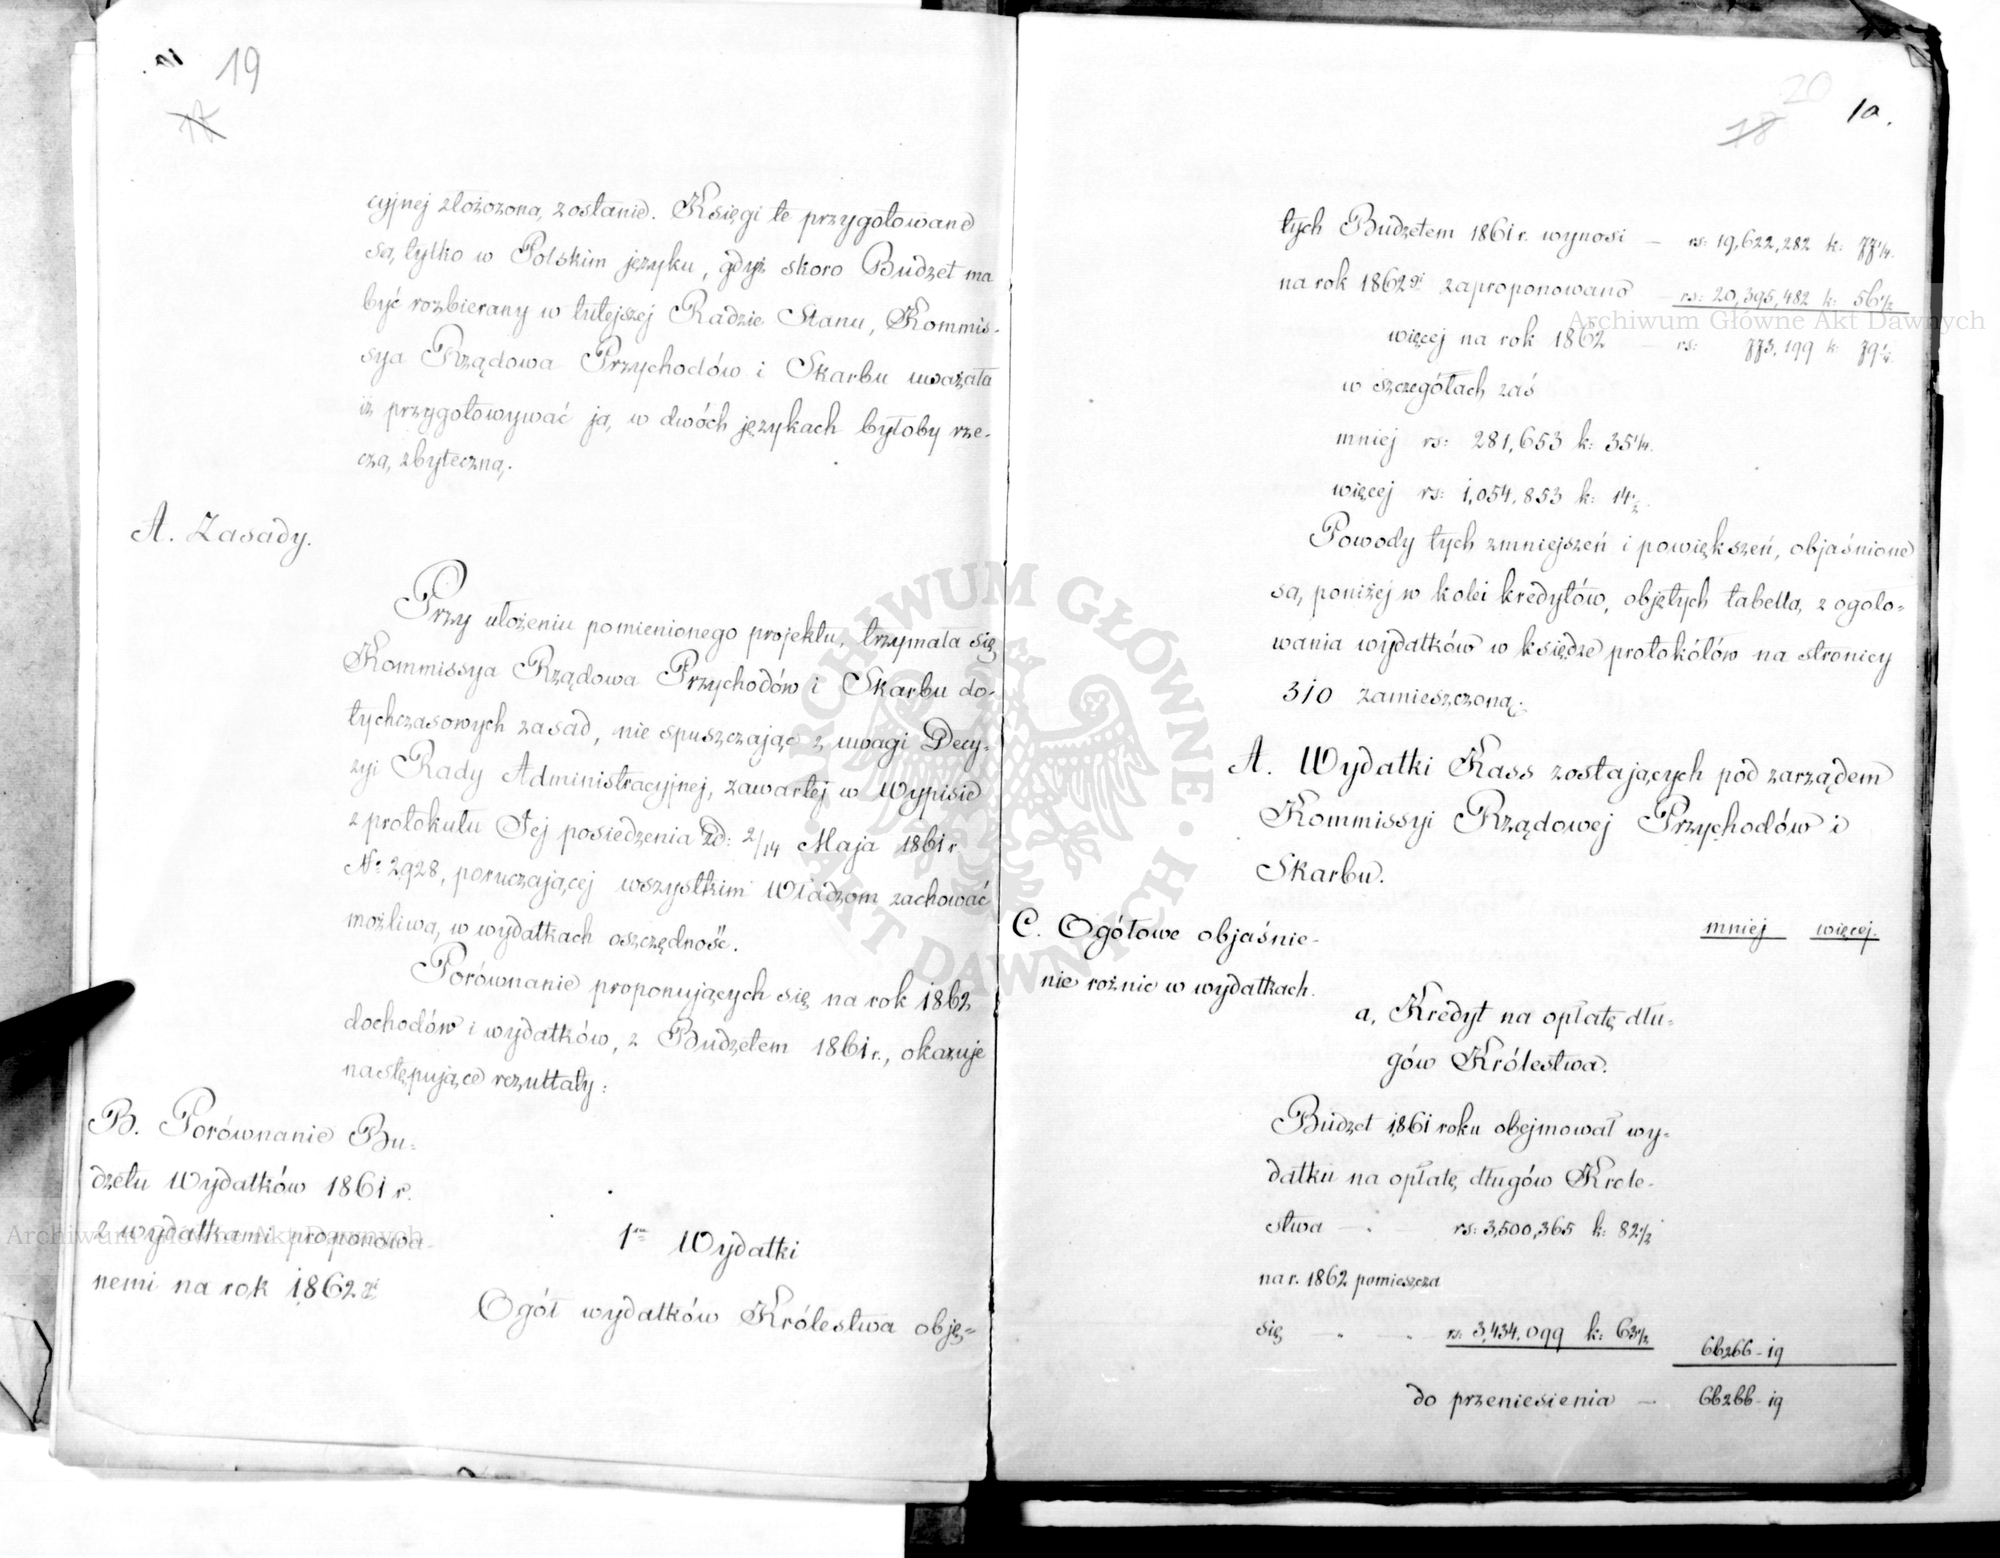 19
cyjnej złożoną, zostanie. Księgi te przygotowane
są, tylko w Polskim języku, gdyż skoro Budżet ma
być rozbierany w tutejszej Radzie Stanu, Kommis-
sya Rządowa Przychodów i Skarbu uważała
iż przygotowywać ją, w dwóch językach byłoby rze-
czą, zbyteczną.
A. Zasady.
Przy ułożeniu pomienionego projektu, trzymała się
Kommissya Rządowa Przychodów i Skarbu do-
tychczasowych zasad, nie spuszczając z uwagi Decy-
zyi Rady Administracyjnej, zawartej w Wypisie
z protokułu Jej posiedzenia zd: 2/14 Maja 1861 r.
No 2,928, poruczającej wszystkim Władzom zachować
możliwą, w wydatkach oszczędność.
Porównanie proponujących się na rok 1862
dochodów i wydatków, z Budżetem 1861 r., okazuje
następujące rezultaty:
B. Porównanie Bu-
dżetu Wydatków 1861 r.
z wydatkami proponowa-
nemi na rok 1862
Wydatki
Ogół wydatków Królestwa obję-
20
18
10.
tych Budżetem 1861 r. wynosi — rs: 19,622,282 k: 77 1/4.
na rok 1862 zaproponowano — rs: 20,395,482 k: 56 1/2
więcej na rok 1862 — rs: 773,199 k: 79 1/4.
w szczegółach zaś
mniej rs: 281,653 k: 35 1/4.
więcej rs: 1,054,853 k: 14 1/2.
Powody tych zmniejszeń i powiększeń, objaśnione
są, poniżej w kolei kredytów, objętych tabellą, z ogoło-
wania wydatków w księdze protokółów na stronicy
310 zamieszczoną.
A. Wydatki Kass zostających pod zarządem
Kommissyi Rządowej Przychodów i
Skarbu.
C. Ogółowe objaśnie-
nie rożnic w wydatkach.
mniej więcej.
a, Kredyt na opłatę dłu-
gów Królestwa.
Budżet 1861 roku obejmował wy-
datku na opłatę długów Krole-
stwa — rs: 3,500,365 k: 82 1/2
na r. 1862 pomieszcza
się — rs: 3,434,099 k: 63 1/2 66266 - 19
do przeniesienia — 66266 - 19
Archiwum Główne Akt Dawnych
Archiwum Główne Akt Dawnych
ARCHIWUM GŁÓWNE AKT DAWNYCH